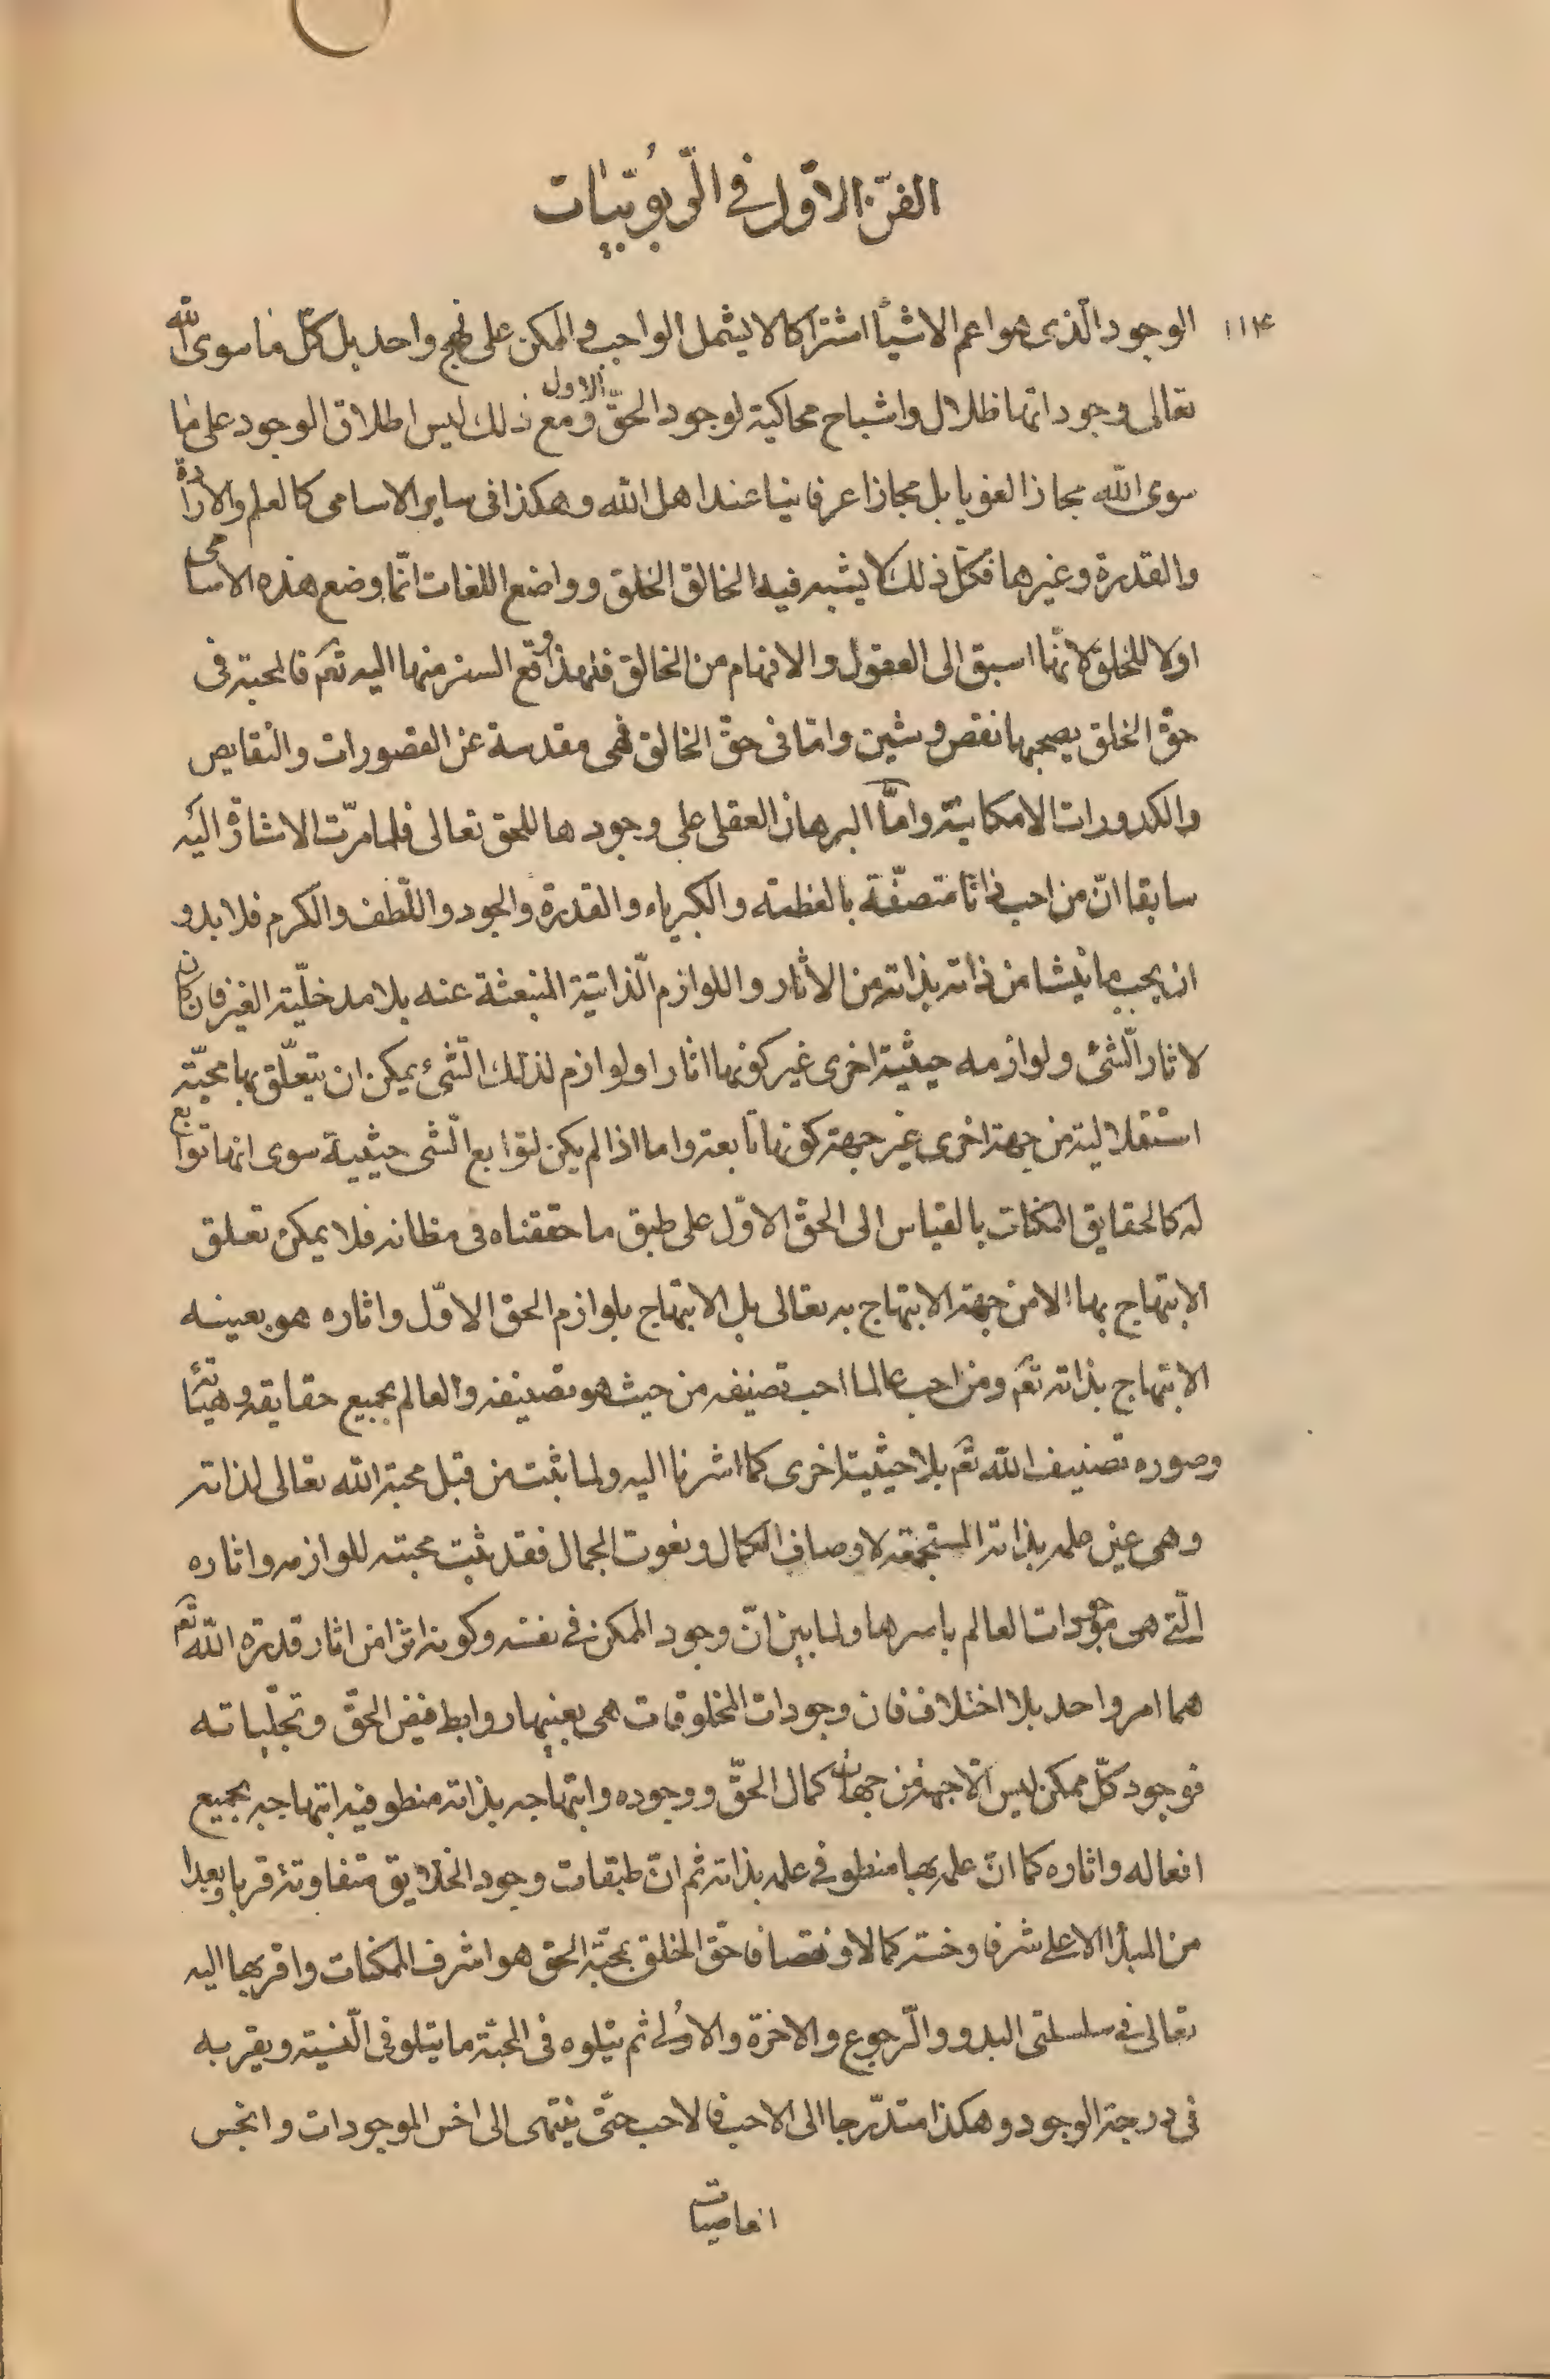 الفنّ الاوّل فى الرّبوبيّات
١١٤
الوجود الّذى هو اعم الاشيأ اشتراكا لا يشمل الواجب والممكن على نهج واحد بل كلّ ما سوى الله
تعالى وجوداتها ظلال واشباح محاكية لوجود الحقّ الاول ومع ذلك ليس اطلاق الوجود على ما
سوى الله مجازا لغويا بل مجازا عرفانيا عند اهل الله وهكذا فى ساير الاسامى كالعلم والارادة
والقدرة وغيرها فكلّ ذلك لا يشبه فيه الخالق الخلق وواضع اللغات انّما وضع هذه الاسامى
اولا للخلق لانّها اسبق الى العقول والافهام من الخالق فلهذا وقع السنر منها اليه تعم فالمحبة فى
حقّ الخلق يصحبها نقص وشين وامّا فى حقّ الخالق فهى مقدسة عن القصورات والنقايص
والكدورات الامكانيّة وامّا البرهان العقلى على وجودها للحق تعالى فلما مرّت الاشارة اليه
سابقا انّ من احب ذاتا متصفّة بالعظمته والكبرياء والقدرة والجود واللّطف والكرم فلا بد و
ان يحب ما ينشا من ذاته بذاته من الاثار واللوازم الذاتية المنبعثة عنه بلا مدخليّة الغير فان كان
لاثار الشّئ ولوازمه حيثيّة اخرى غير كونها اثارا ولوازم لذلك الشّئ يمكن ان يتعلّق بها محبّة
استقلالية من جهة اخرى غير جهة كونها تابعة واما اذا لم يكن لتوابع الشّى حيثيية سوى انها توابع
له كالحقايق الممكنات بالقياس الى الحقّ الاوّل على طبق ما حققناه فى مظانه فلا يمكن تعلق
الابتهاج بها الا من جهة الابتهاج به تعالى بل الابتهاج بلوازم الحق الاوّل واثاره هو بعينه
الابتهاج بذاته تعم ومن احب عالما احب تصنيفه من حيث هو تصنيفه والعالم بجميع حقايقه وهيئاته
وصوره تصنيف الله تعم بلا حيثية اخرى كما اشرنا اليه ولما ثبت من قبل محبة الله تعالى لذاته
وهى عين علمه بذاته المستجمعة لاوصاف الكمال ونعوت الجمال فقد ثبت محبته للوازمه واثاره
الّتى هى موجودات العالم باسرها ولما بين انّ وجود الممكن فى نفسه وكونه اثرا من اثار قدرة الله تعم
هما امر واحد بلا اختلاف فان وجودات المخلوقات هى بعينها روابط فيض الحقّ وتجلّياته
فوجود كلّ ممكن ليس الّا جهة من جهات كمال الحقّ ووجوده وابتهاجه بذاته منطو فيه ابتهاجه بجميع
افعاله واثاره كما انّ علمه بها منطو فى علمه بذاته ثم انّ طبقات وجود الخلايق متفاوتة قربا وبعدا
من المبدأ الاعلى شرفا وخسة كمالا ونقصا فاحقّ الخلق بمحبّة الحق هو اشرف الممكنات واقربها اليه
تعالى فى سلسلتى البدو والرّجوع والاخرة والاولى ثم يتلوه فى المحبّة ما يتلو فى النسبة ويقربه
فى درجة الوجود وهكذا متدرّجا الى الاحب فالاحب حتّى ينتهى الى اخس الموجودات وانجس